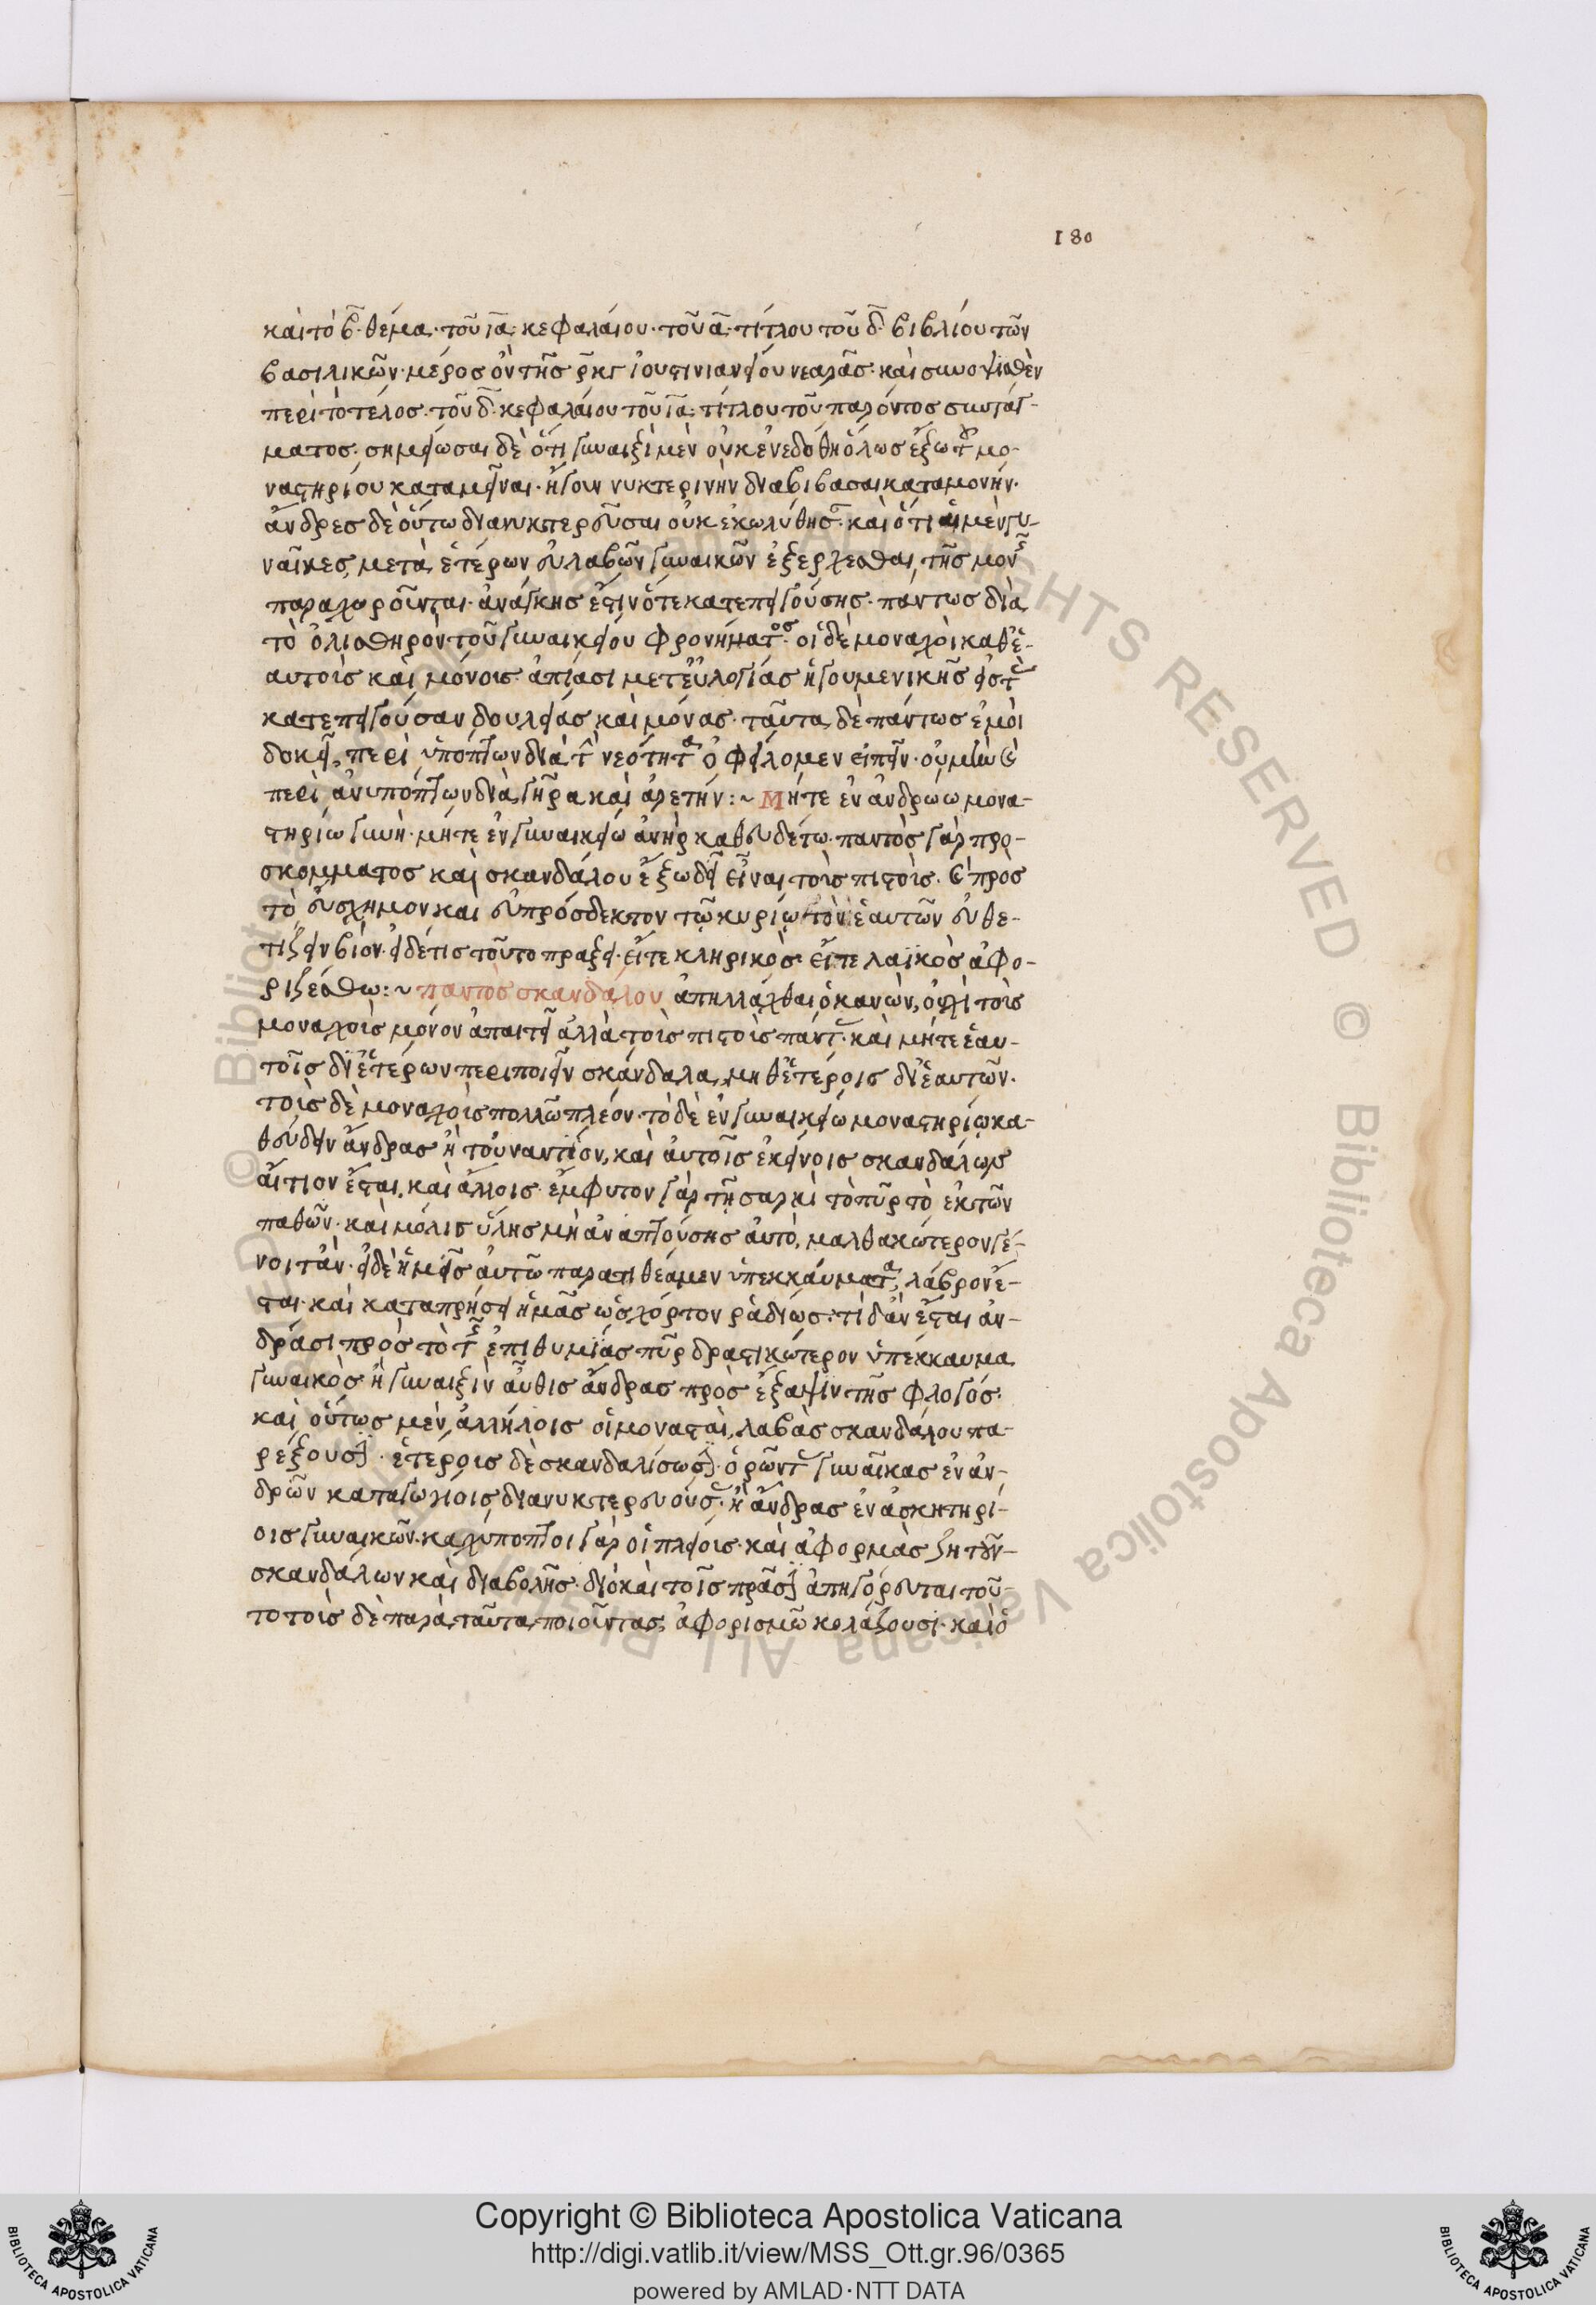 180
καὶ τὸ β̅. θέμα. τοῦ ια̅. κεφαλαίου. τοῦ α̅. τίτλου τοῦ δ̅. βιβλίου τῶν
βασιλικῶν. μέρος ὂν τῆς ρκγ ἰουστινιανείου νεαρᾶς. καὶ συνοψισθὲν
περὶ τὸ τέλος. τοῦ δ̅. κεφαλαίου τοῦ ια̅. τίτλου τοῦ παρόντος συντάγ-
ματος. σημείωσαι δὲ ὅτι γυναιξὶ μὲν οὐκ ἐνεδόθη ὅλως ἔξω τοῦ μο-
ναστηρίου καταμεῖναι. ἤγουν νυκτερινὴν διαβιβάσαι καταμονήν.
ἄνδρες δὲ οὕτω διανυκτερεῦσαι οὐκ ἐκωλύθησαν. καὶ ὅτι αἱ μὲν γυ-
ναῖκες, μετὰ ἑτέρων εὐλαβῶν γυναικῶν ἐξέρχεσθαι, τῆς μονῆς
παραχωροῦνται. ἀνάγκης ἔστιν ὅτε κατεπειγούσης. πάντως διὰ
τὸ ὀλισθηρὸν τοῦ γυναικείου φρονήματος. οἱ δὲ μοναχοὶ καθ' ἑ-
αυτοὺς καὶ μόνοις ἀπίασι μετ' εὐλογίας ἡγουμενικῆς εἰς τὰς
κατεπειγούσαν δουλείας καὶ μόνας. ταῦτα δὲ πάντως ἐμοὶ
δοκεῖ, περὶ ὑπόπτων διὰ τὴν νεότητα ὀφείλομεν εἰπεῖν. οὐ μὴν καὶ
περὶ ἀνυπόπτων διὰ γῆρα καὶ ἀρετήν :~ Μήτε ἐν ἀνδρώω μονα-
στηρίω γυνὴ. μήτε ἐν γυναικείω ἀνὴρ καθευδέτω. παντὸς γὰρ προ-
σκόμματος καὶ σκανδάλου ἔξω δεῖ εἶναι τοὺς πιστούς. καὶ πρὸς
τὸ εὔσχημον καὶ εὐπρόσδεκτον τῷ κυρίῳ τὸν ἑαυτῶν εὐθε-
τίζειν βίον. εἰ δέ τις τοῦτο πράξει. εἴτε κληρικὸς εἴτε λαϊκὸς ἀφο-
ριζέσθω :~ παντὸς σκανδάλου ἀπηλλάχθαι ὁ κανὼν, οὐχὶ τοὺς
μοναχοὺς μόνον ἀπαιτεῖ ἀλλὰ τοὺς πιστοὺς πάντας. καὶ μήτε ἑαυ-
τοῖς δι' ἑτέρων περιποιεῖν σκάνδαλα, μηθ' ἑτέροις δι' ἑαυτῶν.
τοὺς δὲ μοναχοὺς πολλῷ πλέον. τὸ δὲ ἐν γυναικείω μοναστηρίῳ κα-
θεύδειν ἄνδρας ἢ τοὐναντίον, καὶ αὐτοῖς ἐκείνοις σκανδάλων
αἴτιον ἔσται, καὶ ἄλλοις. ἔμφυτον γὰρ τῇ σαρκὶ τὸ πῦρ τὸ ἐκ τῶν
παθῶν. καὶ μόλις ὕλης μὴ ἀναπτούσης αὐτὸ, μαλθακώτερον γέ-
νοιτ' ἂν. εἰ δὲ ἡμεῖς αὐτῷ παρατιθέαμεν ὑπεκκαύματα, λάβρον ἔ-
σται. καὶ καταπρήσει ἡμᾶς ὡς χόρτον ῥαδίως. τί δ' ἂν ἔσται ἀν-
δράσι πρὸς τὸ τῆς ἐπιθυμίας πῦρ δραστικώτερον ὑπέκκαυμα
γυναικὸς ἢ γυναιξὶν αὖθις ἄνδρας πρὸς ἔξαψιν τῆς φλογός.
καὶ οὕτως μὲν, ἀλλήλοις οἱ μονασταὶ, λαβὰς σκανδάλου πα-
ρέξουσι. ἑτέροις δὲ σκανδαλίσωσι. ὁρῶντες γυναῖκας ἐν ἀν-
δρῶν καταγωγίοις διανυκτερευούσας. ἢ ἄνδρας ἐν ἀσκητηρί-
οις γυναικῶν. καχύποπτοι γὰρ οἱ πλείους. καὶ ἀφορμὰς ζητοῦν-
σκανδάλων καὶ διαβολῆς. διὸ καὶ τοῖς πρᾶσι ἀπηγόρευται τοῦ-
το τοὺς δὲ παρὰ ταῦτα ποιοῦντας, ἀφορισμῷ κολάζουσι. καὶ ὁ
Copyright © Biblioteca Apostolica Vaticana
http://digi.vatlib.it/view/MSS_Ott.gr.96/0365
powered by AMLAD·NTT DATA